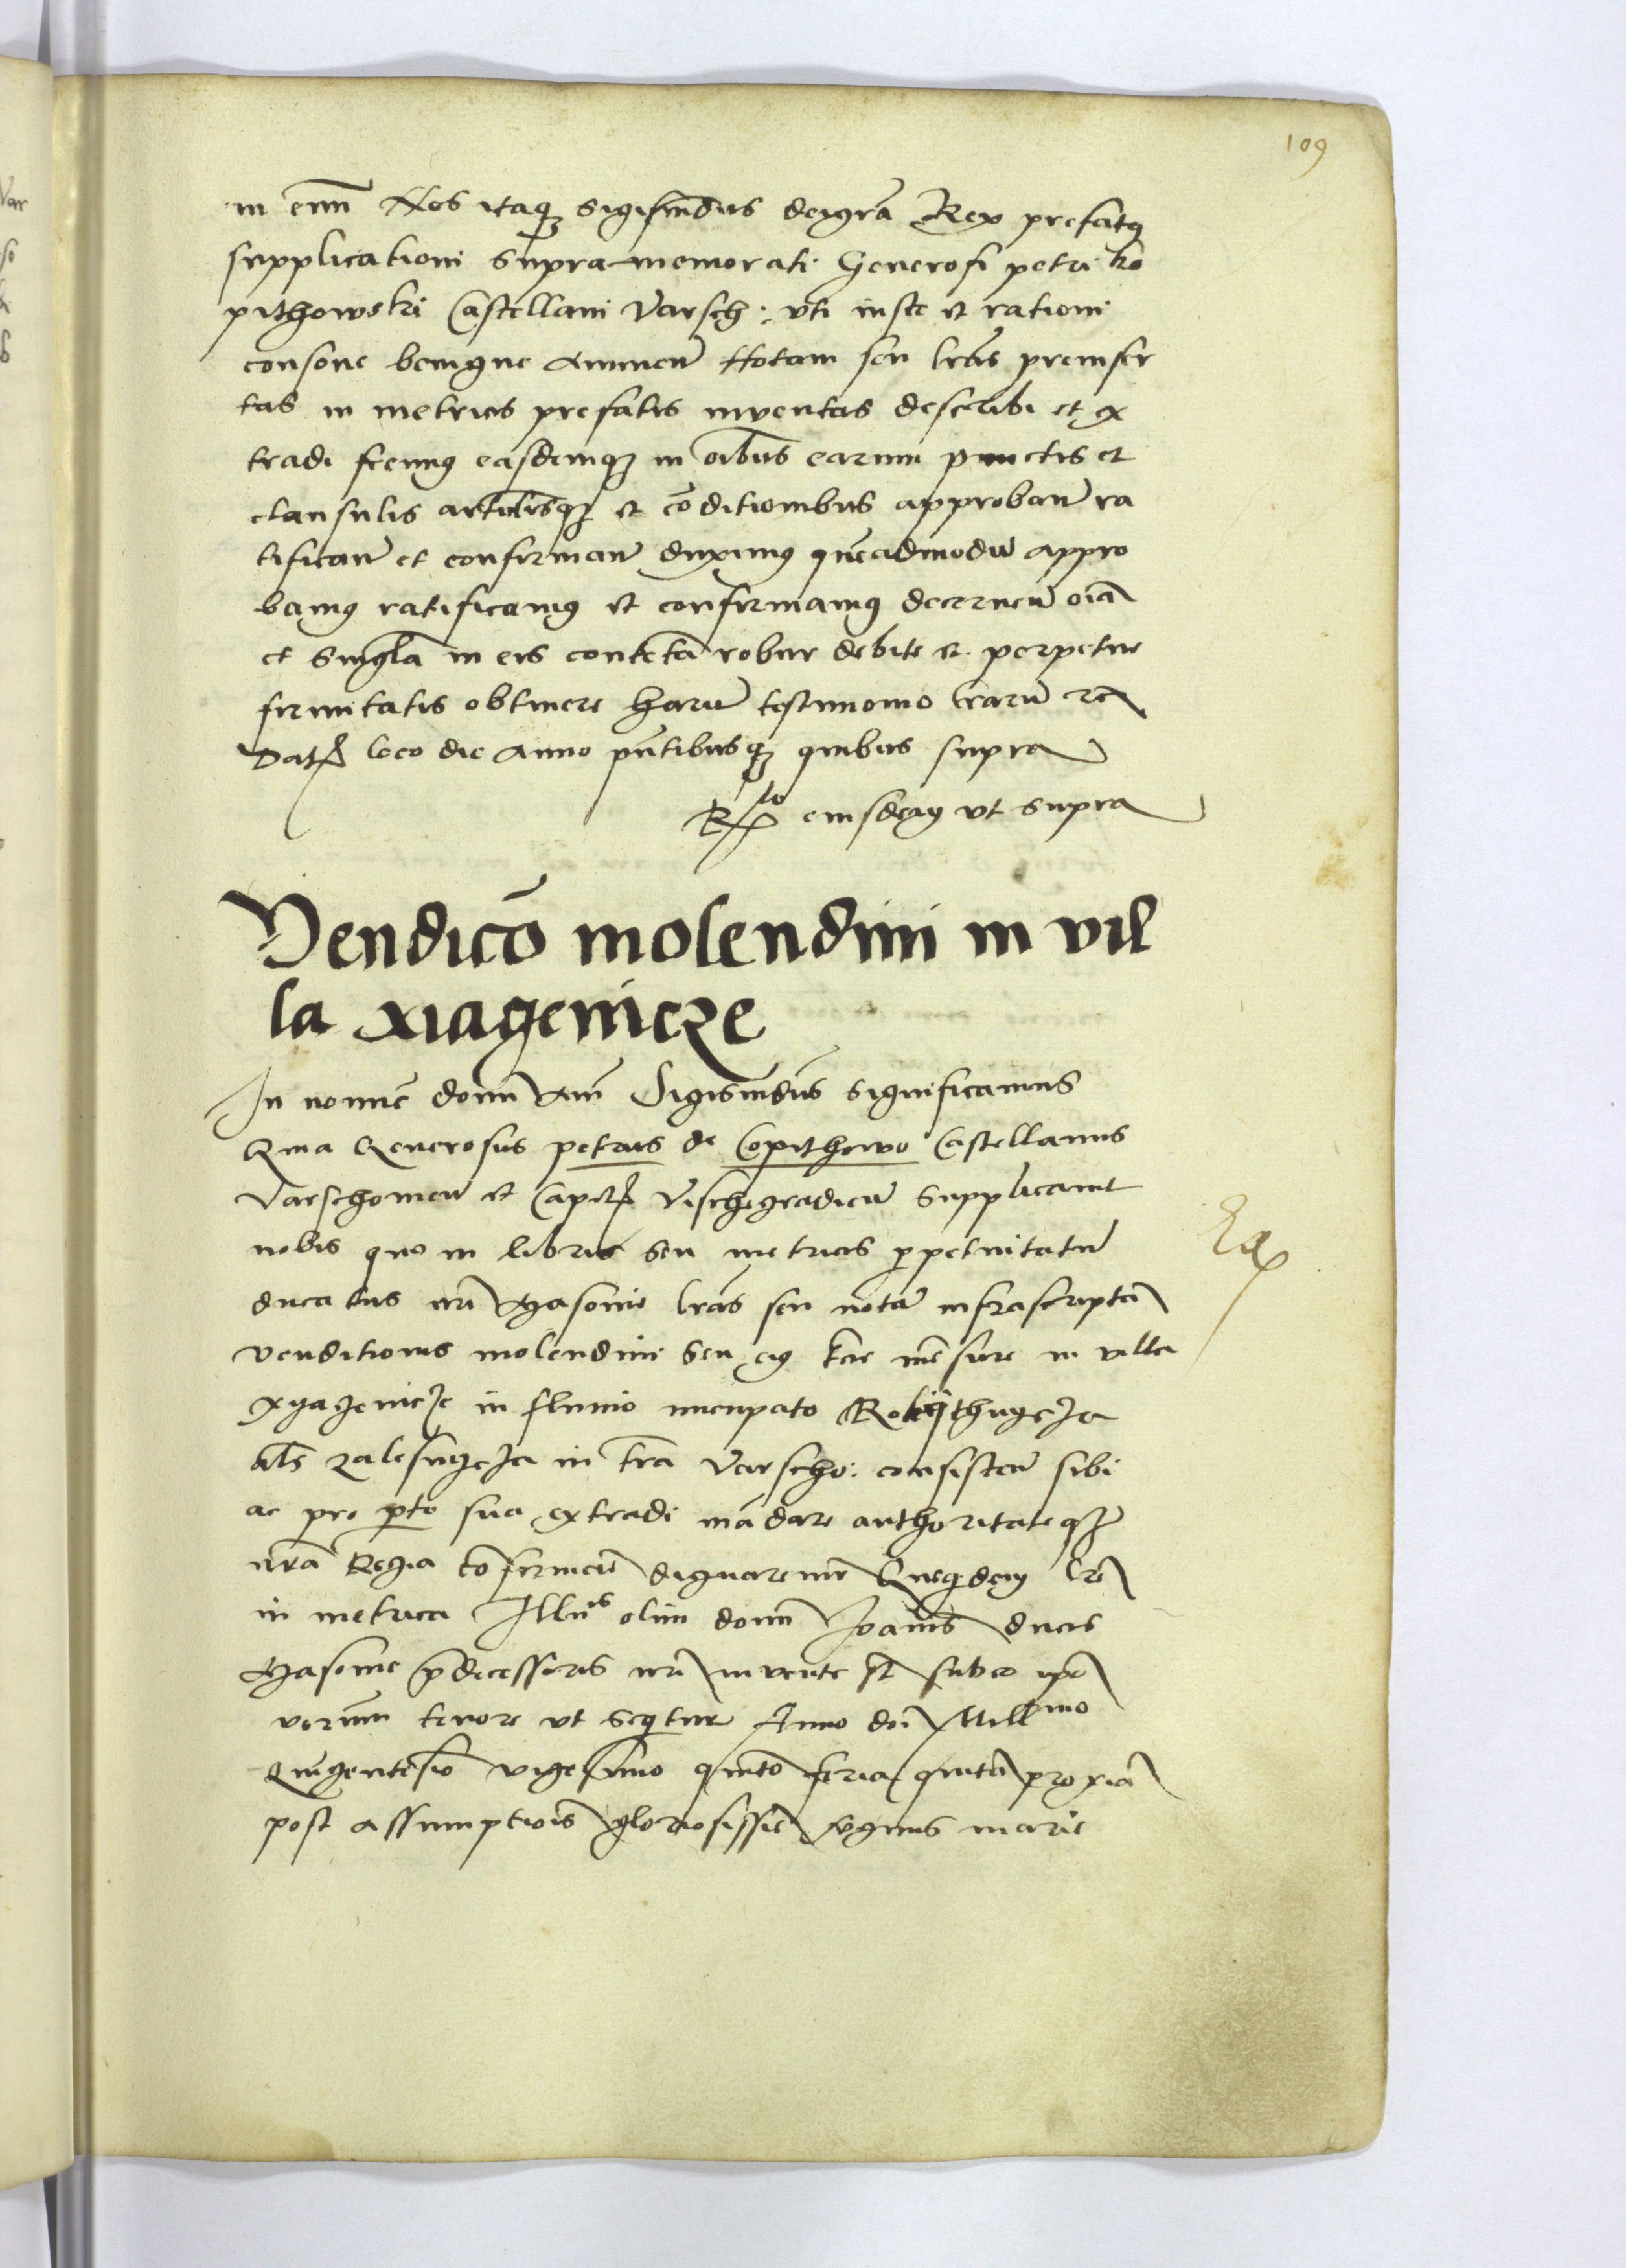 109
in eum Nos itaq sigismdus deigra Rex prefatq
supplicationi supra memorati Generosi petri ko
pithowski Castellani Varsch: vti iuste et rationi
consone benigne annuen Notam seu lras preinser
tas in metricis prefatis inventas describi et ex
tradi fecimq easdemq in oibus earum punctis et
clausulis articulisq et coditionibus approban ra
tifican et confirman duximq queadmodu appro
bamq ratificamq et confirmamq decernen oia
et singla in eis contenta robur debite et perpetue
firmitatis obtinere haru testimonio lraru
Dat loco die anno pntibusq quibus supra
Rto eiusdem vt supra
Vendico molendini in vil
la xiazenicze
In nomine domi Am Sigismdus significamus
Quia Generosus petrus de Copithowo Castellanus
Varschowien et Capit Vischegradien supplicavit
nobis quo in libris seu metricis ppetuitatu
ducatus nri Masovie lras seu nota infrascripta
venditionis molendini seu eiq tercie mesure in villa
xyazenicze in fluvio nuncupato Rokythnycza
als zalesnycza in tra Varscho: consisten sibi
ac pro pte sua extradi madare authoritateq
nra Regia cofirmare dignaremr Queqdem lre
in metrica Illris olim domi Joanis ducis
Masovie pdecessoris nri invente st sub eo qui
verum tenore vt sequitur Anno dni Millmo
Quigentesio vigesimo quinto feria quinta proxia
post assumptiois gloriosissie virginis marie